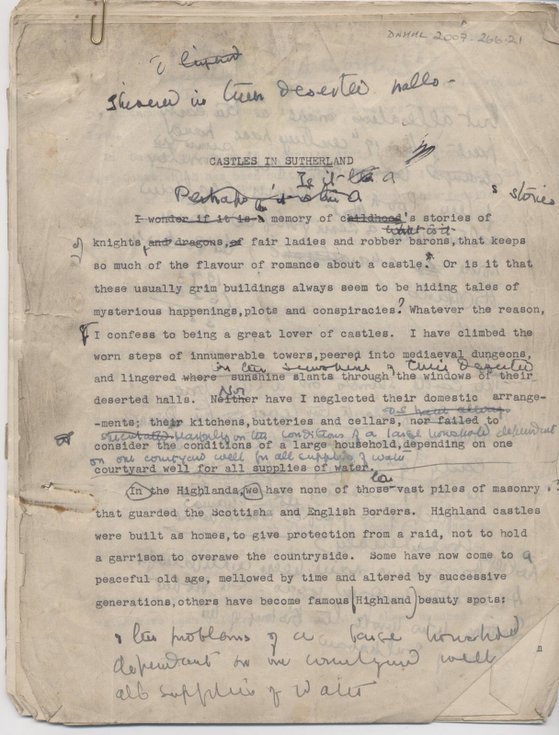 DNHHL 2007-266-21
I lingered
shivered in their deserted halls -
CASTLES IN SUTHERLAND
Is it the a
Perhaps it is the A
s stories
I wonder if it is a memory of childhood's stories of
knights, and dragons, of fair ladies and robber barons, that keeps
so much of the flavour of romance about a castle. Or is it that
these usually grim buildings always seem to be hiding tales of
mysterious happenings, plots and conspiracies? Whatever the reason,
I confess to being a great lover of castles. I have climbed the
worn steps of innumerable towers, peered into mediaeval dungeons,
in the sunshine of their deserted
and lingered where sunshine slants through the windows of their
Nor
deserted halls. Neither have I neglected their domestic arrange-
-ments; their kitchens, butteries and cellars, nor failed to
on the conditions of a large household dependent
consider the conditions of a large household, depending on one
on one courtyard well for all supplies of water
courtyard well for all supplies of water.
the
In the Highlands, we have none of those vast piles of masonry
that guarded the Scottish and English Borders. Highland castles
were built as homes, to give protection from a raid, not to hold
a garrison to overawe the countryside. Some have now come to a
peaceful old age, mellowed by time and altered by successive
generations, others have become famous (Highland) beauty spots:
the problems of a large household
dependent on one courtyard well
all supplies of water